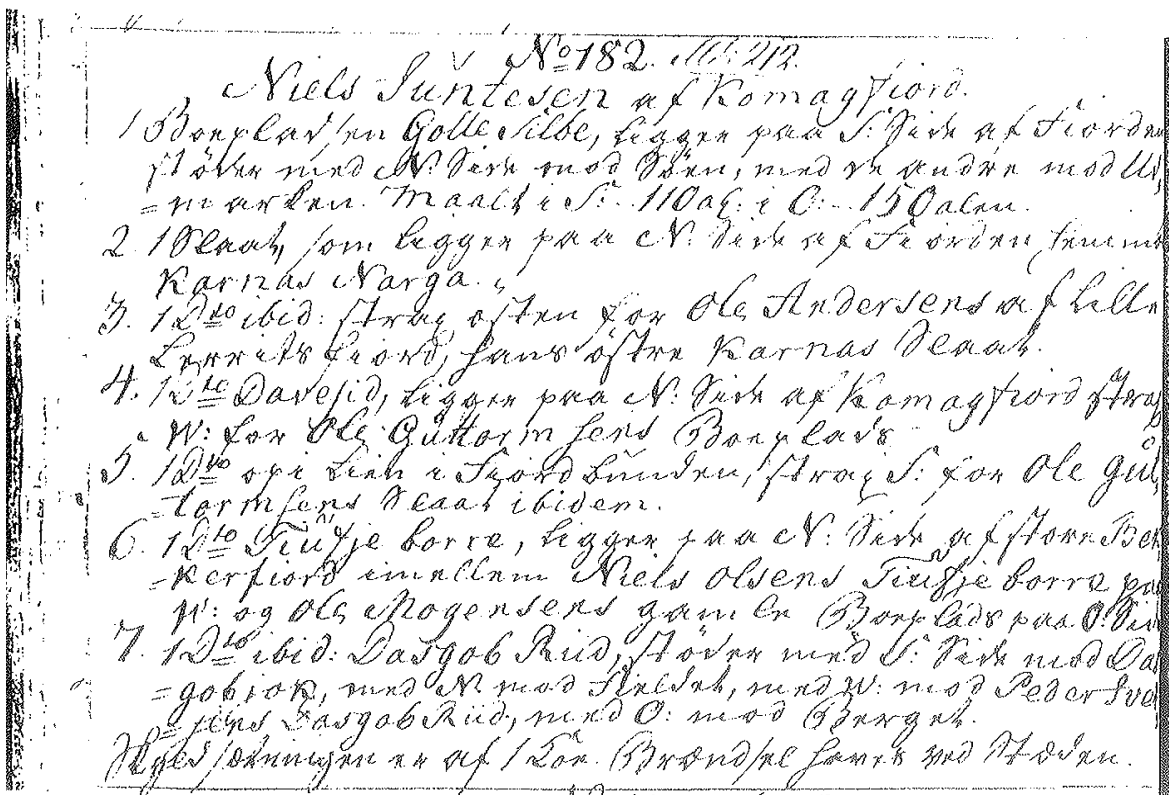 No 182. 212.
Niels Suntesen af Komagfiord.
1 Boepladsen Golle Silbe, ligger paa S: Side af Fiorden
støder med N: Side mod Søen, med de andre mod Ud,
=marken. Maalt i S: 110 al: i O: 150 alen.
2. 1 Slaat, som ligger paa N: Side af Fiorden
Karnas Narga.
3. 1 Dto ibid: strax østen for Ole Andersens af Lille
Lerritsfiord, hans østre Karnas Slaat.
4. 1 Dto Davesid, ligger paa N: Side af Komagfiord strax
W: for Ole Guttormsens Boeplads
5. 1 Dto op i Lien i Fiordbunden, strax S: for Ole Gut
=tormsens Slaat ibidem.
6. 1 Dto Tiufje borre, ligger paa N: Side af store Bek
=kerfiord imellem Niels Olsens Tiufje borre paa
W: og Ole Mogensens gamle Boeplads paa O: Side
7. 1 Dto ibid: Dasgob Riid, støder med S: Side mod Das
=gobjok, med N mod Fieldet, med W: mod Peder Sve
=sens Dasgob Riid, med O: mod Berget.
Skyldsætningen er af 1 Koe. Brændsel haves ved Stæden.